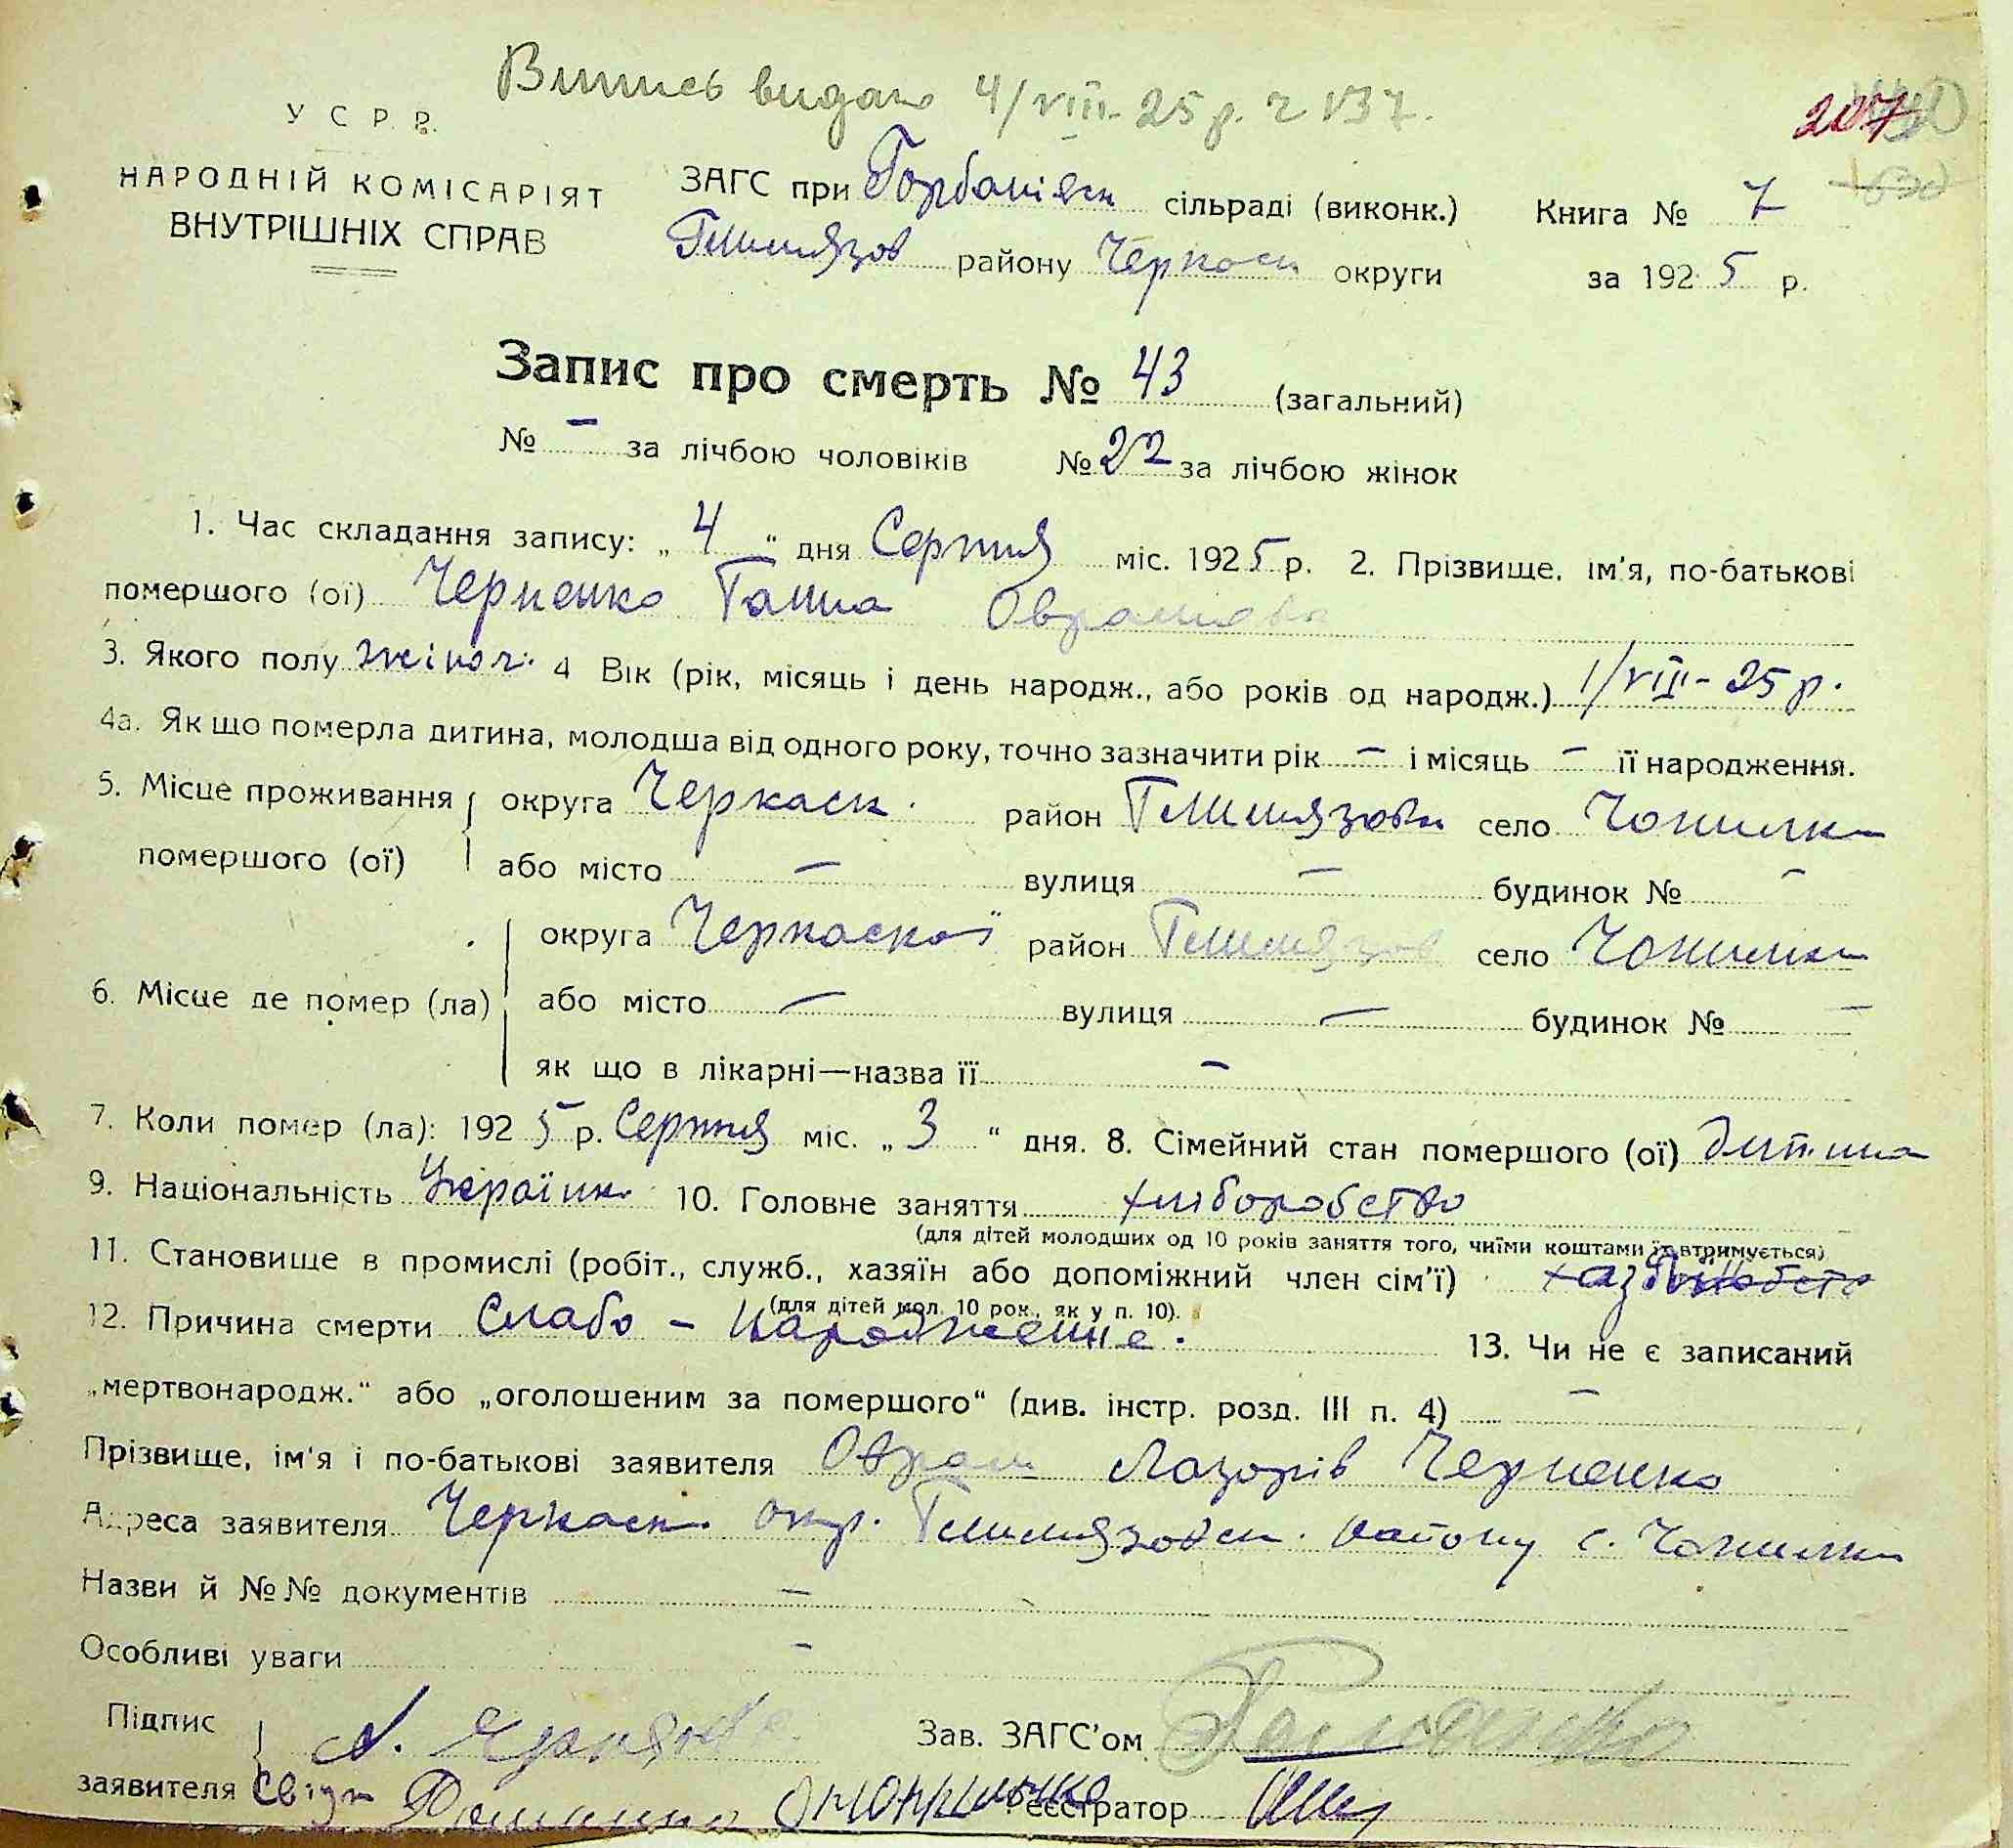 Випись видано 4/VIII-25 р. ч 137.
У С Р Р.
207
НАРОДНІЙ КОМІСАРІЯТ
ВНУТРІШНІХ СПРАВ
ЗАГС при Горбанівск сільраді (виконк.) Книга № 7
Гельмязов району Черкаськ округи за 1925 р.
Запис про смерть № 43 (загальний)
№ – за лічбою чоловіків № 22 за лічбою жінок
1. Час складання запису: „ 4 “ дня Серпня міс. 1925 р. 2. Прізвище, ім'я, по-батькові
помершого (ої) Черненко Ганна Оврамовна
3. Якого полу жіноч. 4 Вік (рік, місяць і день народж., або років од народж.) 1/VIII-25 р.
4а. Як що померла дитина, молодша від одного року, точно зазначити рік – і місяць – її народження.
5. Місце проживання округа Черкаск. район Гельмязовск село Чопилки
помершого (ої) або місто – вулиця – будинок № –
округа Черкаської район Гельмязов село Чопилки
6. Місце де помер (ла) або місто – вулиця – будинок № –
як що в лікарні—назва її –
7. Коли помер (ла): 1925 р. Серпня міс. „ 3 “ дня. 8. Сімейний стан помершого (ої) дитина
9. Національність Україн. 10. Головне заняття хліборобство
(для дітей молодших од 10 років заняття того, чиїми коштами їх втримується)
11. Становище в промислі (робіт., служб., хазяїн або допоміжний член сім'ї)
(для дітей мол. 10 рок., як у п. 10).
12. Причина смерти Слабо - народження. 13. Чи не є записаний
„мертвонародж.“ або „оголошеним за помершого“ (див. інстр. розд. III п. 4) –
Прізвище, ім'я і по-батькові заявителя Оврам Лазорів Черненко
Адреса заявителя Черкаск. окр. Гельмязовск. району с. Чопилки
Назви й №№ документів –
Особливі уваги –
Підпис А. Зав. ЗАГС'ом
заявителя Свідк Реєстратор